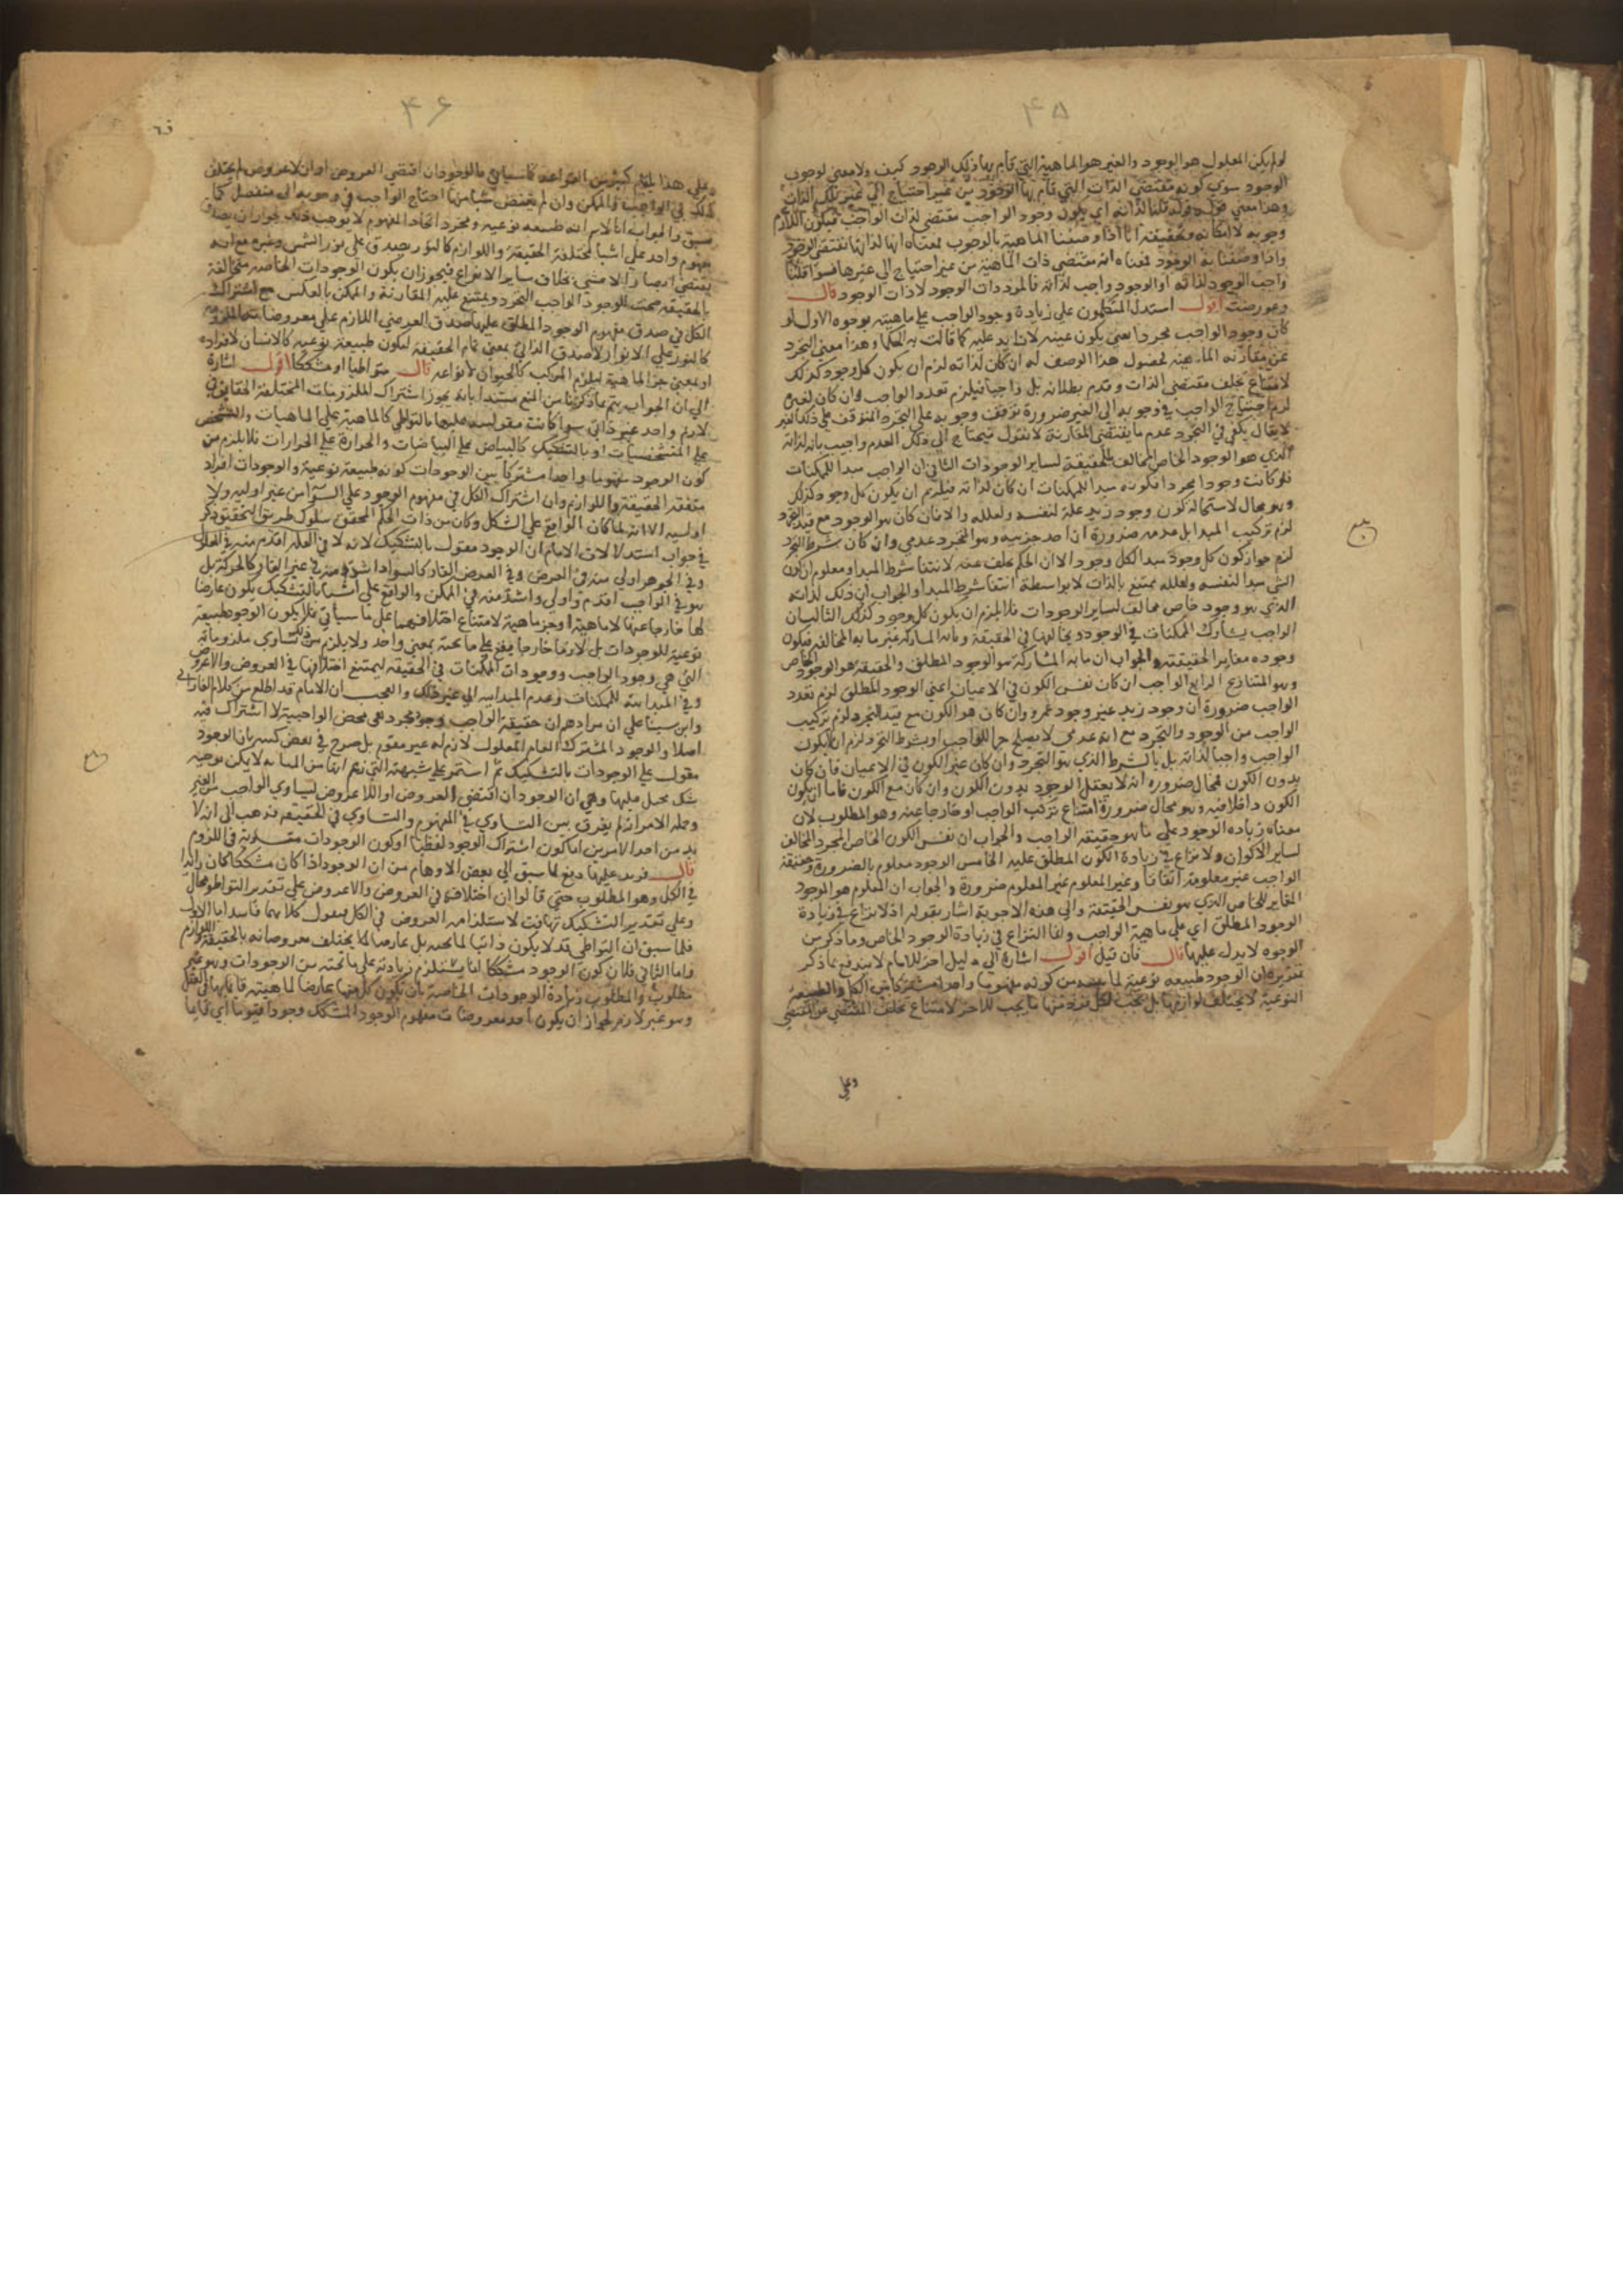 ۴۵
لو لم يكن المعلول هو الوجود والغير هو الماهية التي قام بها ذلك الوجود كيف ولا معنى لوجوب
الوجود سوى كونه مقتضى الذات التي قام بها الوجود من غير احتياج الى غير تلك الذات
وجوبه لا امكانه وتحقيقه انا اذا وصفنا الماهية بالوجوب فمعناه انها لذاتها تقتضي الوجود
واذا وصفنا به الوجود فمعناه انه مقتضى ذات الماهية من غير احتياج الى غيرها فسواء قلنا
واجب الوجود لذاته او الوجود واجب لذاته فالمراد ذات الوجود لا ذات الوجود قال
وعورضت اقول استدل المتكلمون على زيادة وجود الواجب على ماهيته بوجوه الاول لو
كان وجود الواجب مجردا
عن مقارنة الماهية لحصول هذا الوصف له ان كان لذاته لزم ان يكون كل وجود كذلك
لامتناع تخلف مقتضى الذات وقدم بطلانه بل واجبا فيلزم تعدد الواجب وان كان لغيره
لزم احتياج الواجب في وجوبه الى الغير ضرورة توقف وجوبه على التجرد المتوقف على ذلك الغير
لا يقال يكفي في التجرد عدم ما يقتضي المقارنة لانا نقول فيحتاج الى ذلك العدم واجيب بانه لذاته
الذي هو الوجود الخاص المخالف بالحقيقة لساير الوجودات الثاني ان الواجب مبدا للممكنات
فلو كانت وجودا مجردا فكونه مبدا للممكنات ان كان لذاته فيلزم ان يكون كل وجود كذلك
وهو محال لاستحالة كون وجود زيد علة لنفسه ولعلله والا فان كان هو الوجود مع قيد التجرد
لزم تركيب المبدا بل عدمه ضرورة ان احد جزئيه وهو التجرد عدمي وان كان بشرط التجرد
لزم جواز كون كل وجود مبدا لكل وجود الا ان الحكم تخلف عنه لانتفا شرط المبدا ومعلوم ان كون
الشي مبدا لنفسه ولعلله ممتنع بالذات لا بواسطة انتفا شرط المبدا والجواب ان ذلك لذاته
الذي هو وجود خاص مخالف لساير الوجودات فلا يلزم ان يكون كل وجود كذلك الثالث ان
الواجب يشارك الممكنات في الوجود ويخالفها في الحقيقة وما به المشاركة غير ما به المخالفة فيكون
وجوده مغايرا لحقيقته والجواب ان ما به المشاركة هو الوجود المطلق والحقيقة هو الوجود الخاص
وهو المتنازع الرابع الواجب ان كان نفس الكون في الاعيان اعني الوجود المطلق لزم تعدد
الواجب ضرورة ان وجود زيد غير وجود عمرو وان كان هو الكون مع قيد التجرد لزم تركيب
الواجب من الوجود والتجرد مع انه عدمي لا يصلح جزا للواجب او بشرط التجرد لزم ان لا يكون
الواجب واجبا لذاته بل بالشرط الذي هو التجرد وان كان غير الكون في الاعيان فان كان
بدون الكون فمحال ضرورة انه لا يعقل الوجود بدون الكون وان كان مع الكون فاما ان يكون
الكون داخلا فيه وهو محال ضرورة امتناع تركب الواجب او خارجا عنه وهو المطلوب لان
معناه زيادة الوجود على ما هو حقيقة الواجب والجواب ان نفس الكون الخاص المجرد المخالف
لساير الاكوان ولا نزاع في زيادة الكون المطلق عليه الخامس الوجود معلوم بالضرورة وحقيقة
الواجب غير معلومة اتفاقا وغير المعلوم غير المعلوم ضرورة والجواب ان المعلوم هو الوجود
المغاير للخاص الذي هو نفس الحقيقة والى هذه الاجوبة اشار بقوله اذ لا نزاع في زيادة
الوجود المطلق اي على ماهية الواجب وانما النزاع في زيادة الوجود الخاص وما ذكر من
الوجوه لا يدل عليها قال فان قيل اقول اشارة الى دليل اخر للامام لا يندفع بما ذكر
تقريره ان الوجود طبيعة نوعية لما
النوعية لا يختلف لوازمها بل يجب لكل فرد منها ما يجب للاخر لامتناع تخلف المقتضى عن المقتضي
وعلى
۴۶
وعلى هذا كثير من القواعد كما سياتي فالوجود ان اقتضى العروض او اللاعروض لم يختلف
ذلك في الواجب والممكن وان لم يقتض شيئا منها احتاج الواجب في وجوبه الى منفصل كما
سبق والجواب انا لا نم انه طبيعة نوعية ومجرد اتحاد المفهوم لا يوجب ذلك لجواز ان يصدق
مفهوم واحد على اشيا مختلفة الحقيقة واللوازم كالنور يصدق على نور الشمس وغيره مع انه
يقتضي ابصار الاعشى بخلاف ساير الانوار فيجوز ان يكون الوجودات الخاصة متخالفة
بالحقيقة يجب للوجود الواجب التجرد ويمتنع عليه المقارنة والممكن بالعكس مع اشتراك
الكل في صدق مفهوم الوجود المطلق عليها صدق العرضي اللازم على معروضاته
كالنور على الانوار لا صدق الذاتي بمعنى تمام الحقيقة ليكون طبيعة نوعية كالانسان لافراده
او بمعنى جز الماهية ليلزم التركب كالحيوان لانواعه قال متواطيا او مشككا اقول اشارة
الى ان الجواب يتم بما ذكرنا من المنع مستندا بانه يجوز اشتراك الملزومات المختلفة الحقايق في
لازم واحد غير ذاتي سوا كانت مقوليته عليها بالتواطي كالماهية على الماهيات والتشخص
على المتشخصات او بالتشكيك كالبياض على البياضات والحرارة على الحرارات فلا يلزم من
كون الوجود مفهوما واحدا مشتركا بين الوجودات كونه طبيعة نوعية والوجودات افراد
متفقة الحقيقة واللوازم وان اشتراك الكل في مفهوم الوجود على السوا من غير اولية ولا
اولوية الا انه لما كان الواقع على الشكل وكان من ذات الحكم المحقق سلوك طريق التحقيق ذكر
في جواب استدلالات الامام ان الوجود مقول بالتشكيك لانه في العلة اقدم منه في المعلول
وفي الجوهر اولى منه في العرض وفي العرض القار كالسواد اشد منه في غير القار كالحركة بل
هو في الواجب اقدم واولى واشد منه في الممكن والواقع على اشيا بالتشكيك يكون عارضا
لها خارجا عنها لا ماهية او جز ماهية لامتناع اختلافهما على ما سياتي فلا يكون الوجود طبيعة
نوعية للوجودات بل لازما خارجا يقع على ما تحته بمعنى واحد ولا يلزم من ذلك تساوي ملزوماته
التي هي وجود الواجب ووجودات الممكنات في الحقيقة ليمتنع اختلافها في العروض واللاعروض
وفي المبدائية للممكنات وعدم المبدائية الى غير ذلك والعجب ان الامام قد اطلع من كلام الفارابي
وابن سينا على ان مرادهم ان حقيقة الواجب وجود مجرد هي محض الواجبية لا اشتراك فيه
اصلا والوجود المشترك العام المعلول لازم له غير مقوم بل صرح في بعض كتبه بان الوجود
مقول على الوجودات بالتشكيك ثم استمر على شبهته التي زعم انها من المتانة لا يمكن توجيه
شك مخيل عليها وهي ان الوجود ان اقتضى العروض او اللاعروض تساوي الواجب من الغير
وجملة الامر انه لم يفرق بين التساوي في المفهوم والتساوي في الحقيقة فذهب الى انه لا
بد من احد الامرين اما كون اشتراك الوجود لفظيا او كون الوجودات متساوية في اللزوم
قال فربد عليها دفع لما سبق الى بعض الاوهام من ان الوجود اذا كان مشككا كان زائدا
في الكل وهو المطلوب حتى قالوا ان اختلافها في العروض واللاعروض على تقدير التواطؤ محال
وعلى تقدير التشكيك تهافت لاستلزامه العروض في الكل فنقول كلاهما فاسد اما الاول
فلما سبق ان التواطي قد لا يكون ذاتيا لما تحته بل عارضا لما يختلف معروضاته بالحقيقة واللوازم
واما الثاني فلان كون الوجود مشككا انما يستلزم زيادته على ما تحته من الوجودات وهو غير
مطلوب والمطلوب زيادة الوجودات الخاصة بان يكون كل منها عارضا لماهية قائما بها في العقل
وهو غير لازم لجواز ان يكون احد معروضات مفهوم الوجود المشكك وجودا قيوما اي قايما